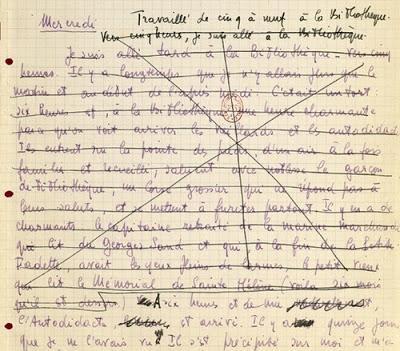 Mercredi
Travaillé de cinq à neuf à la Bibliothèque.
Vers cinq heures, je suis allé à la Bibliothèque.
Je suis allé tard à la bibliothèque vers cinq
heures. Il y a longtemps que je n'y allais plus que le
matin et au début de l'après midi. C'était un tort.
six heures est, à la Bibliothèque une heure charmante
parce qu'on voit arriver les vieillards et les autodidac
Ils entrent sur la pointe des pieds, d'un air à la fois
familier et recueilli, saluent avec noblesse le garçon
de bibliothèque, un corse grossier qui ne répond pas à
leurs saluts et se mettent à fureter partout. Il y en a de
charmants le capitaine retraité de la marine marchande
qui lit du Georges Sand et qui à la fin de la Petite
Fadette, avait les yeux pleins de larmes. le petit vieux
qui lit le Mémorial de Sainte Hélène (voilà six mois
qu'il est dessus). A six heures et demie
l'Autodidacte est arrivé. Il y a quinze jours
que je ne l'avais vu Il s'est précipité sur moi et m'a